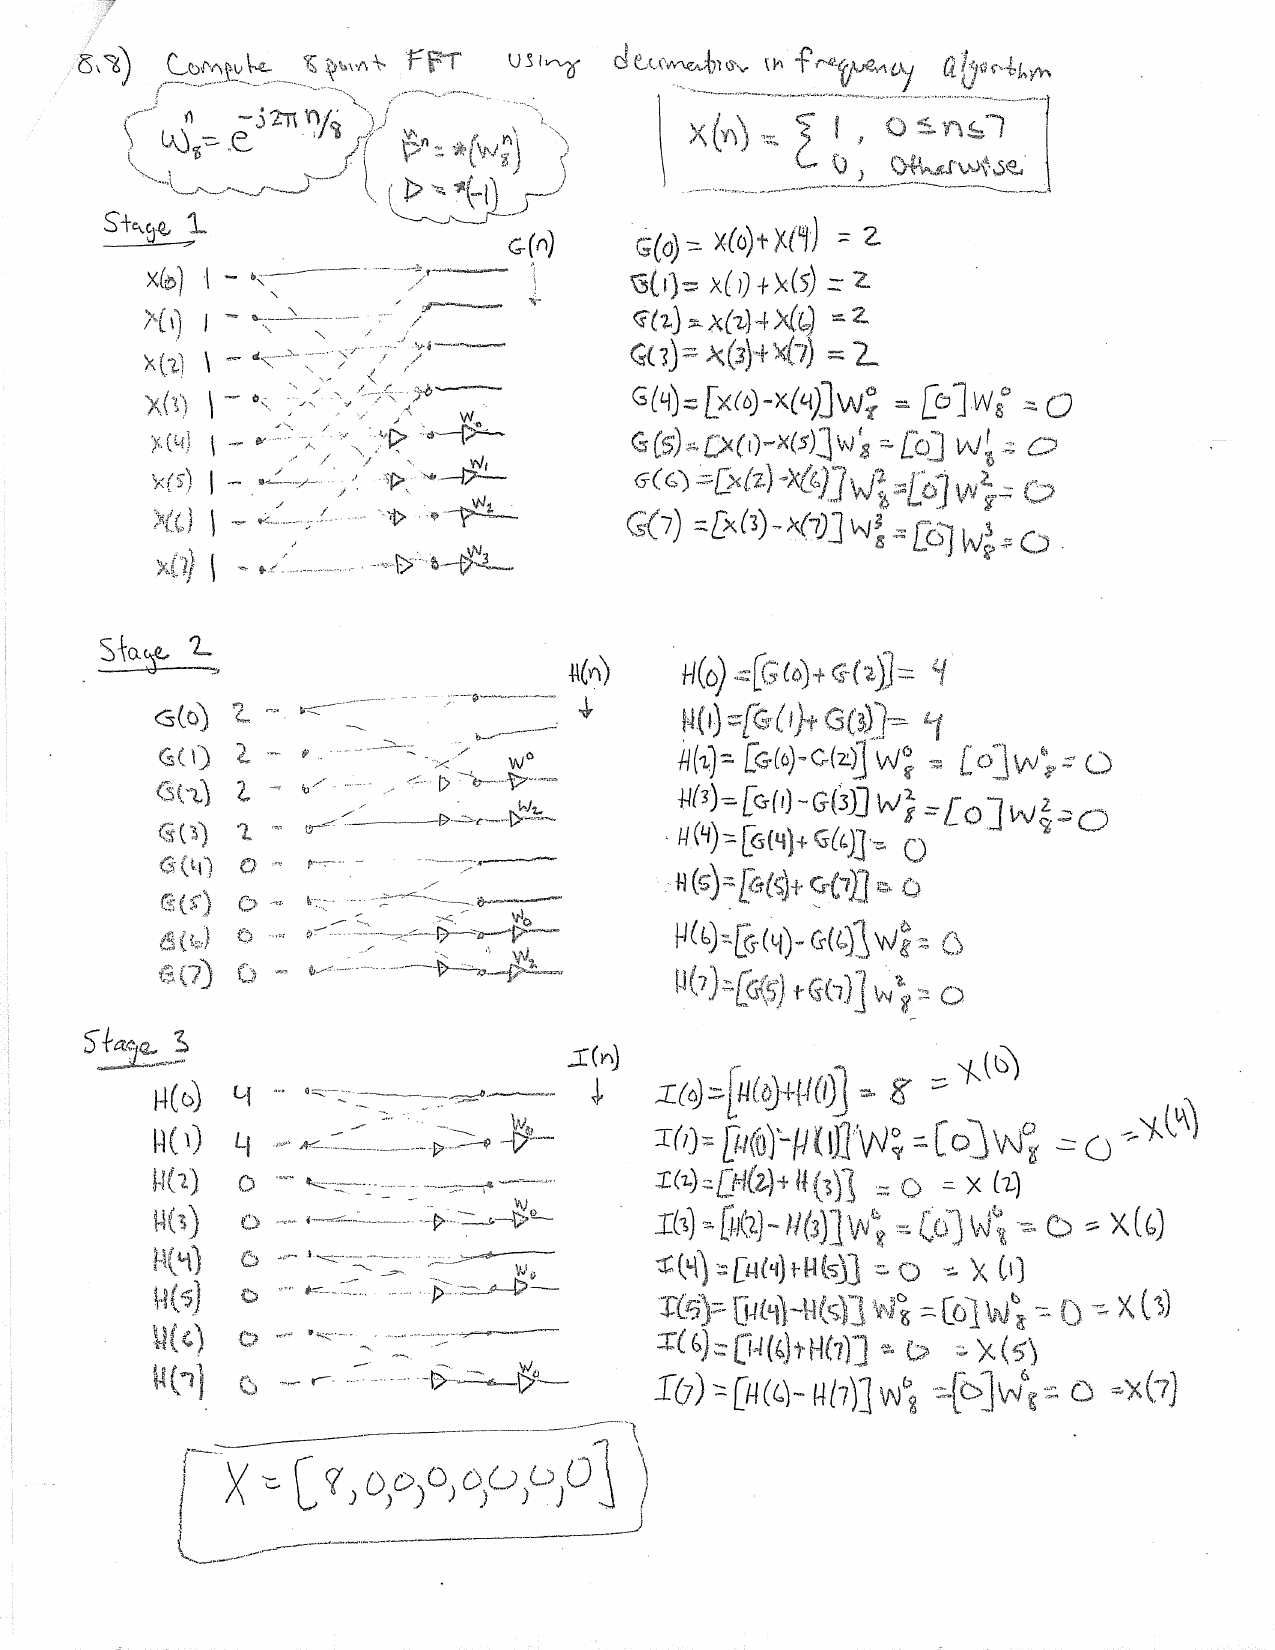 8.8) Compute 8 point FFT using decimation in frequency algorithm
W₈ⁿ = e^(-j2π n/8)
▷ʷⁿ = *(W₈ⁿ)
▷ = *(-1)
x(n) = { 1, 0 ≤ n ≤ 7
0, otherwise
Stage 1
G(n)
X(0) 1
X(1) 1
X(2) 1
X(3) 1
X(4) 1 W₀
X(5) 1 W₁
X(6) 1 W₂
X(7) 1 W₃
G(0) = X(0)+X(4) = 2
G(1) = X(1)+X(5) = 2
G(2) = X(2)+X(6) = 2
G(3) = X(3)+X(7) = 2
G(4) = [X(0)-X(4)]W₈⁰ = [0]W₈⁰ = 0
G(5) = [X(1)-X(5)]W₈¹ = [0]W₈¹ = 0
G(6) = [X(2)-X(6)]W₈² = [0]W₈² = 0
G(7) = [X(3)-X(7)]W₈³ = [0]W₈³ = 0.
Stage 2
H(n)
G(0) 2
G(1) 2
G(2) 2 W⁰
G(3) 2 W₂
G(4) 0
G(5) 0
G(6) 0 W₀
G(7) 0 W₂
H(0) = [G(0)+G(2)] = 4
H(1) = [G(1)+G(3)] = 4
H(2) = [G(0)-G(2)]W₈⁰ = [0]W₈⁰ = 0
H(3) = [G(1)-G(3)]W₈² = [0]W₈² = 0
H(4) = [G(4)+G(6)] = 0
H(5) = [G(5)+G(7)] = 0
H(6) = [G(4)-G(6)]W₈⁰ = 0
H(7) = [G(5)+G(7)]W₈² = 0
Stage 3
I(n)
H(0) 4
H(1) 4 W₀
H(2) 0
H(3) 0 W₀
H(4) 0
H(5) 0 W₀
H(6) 0
H(7) 0 W₀
I(0) = [H(0)+H(1)] = 8 = X(0)
I(1) = [H(0)-H(1)]W₈⁰ = [0]W₈⁰ = 0 = X(4)
I(2) = [H(2)+H(3)] = 0 = X(2)
I(3) = [H(2)-H(3)]W₈⁰ = [0]W₈⁰ = 0 = X(6)
I(4) = [H(4)+H(5)] = 0 = X(1)
I(5) = [H(4)-H(5)]W₈⁰ = [0]W₈⁰ = 0 = X(3)
I(6) = [H(6)+H(7)] = 0 = X(5)
I(7) = [H(6)-H(7)]W₈⁰ = [0]W₈⁰ = 0 = X(7)
X = [8,0,0,0,0,0,0,0]